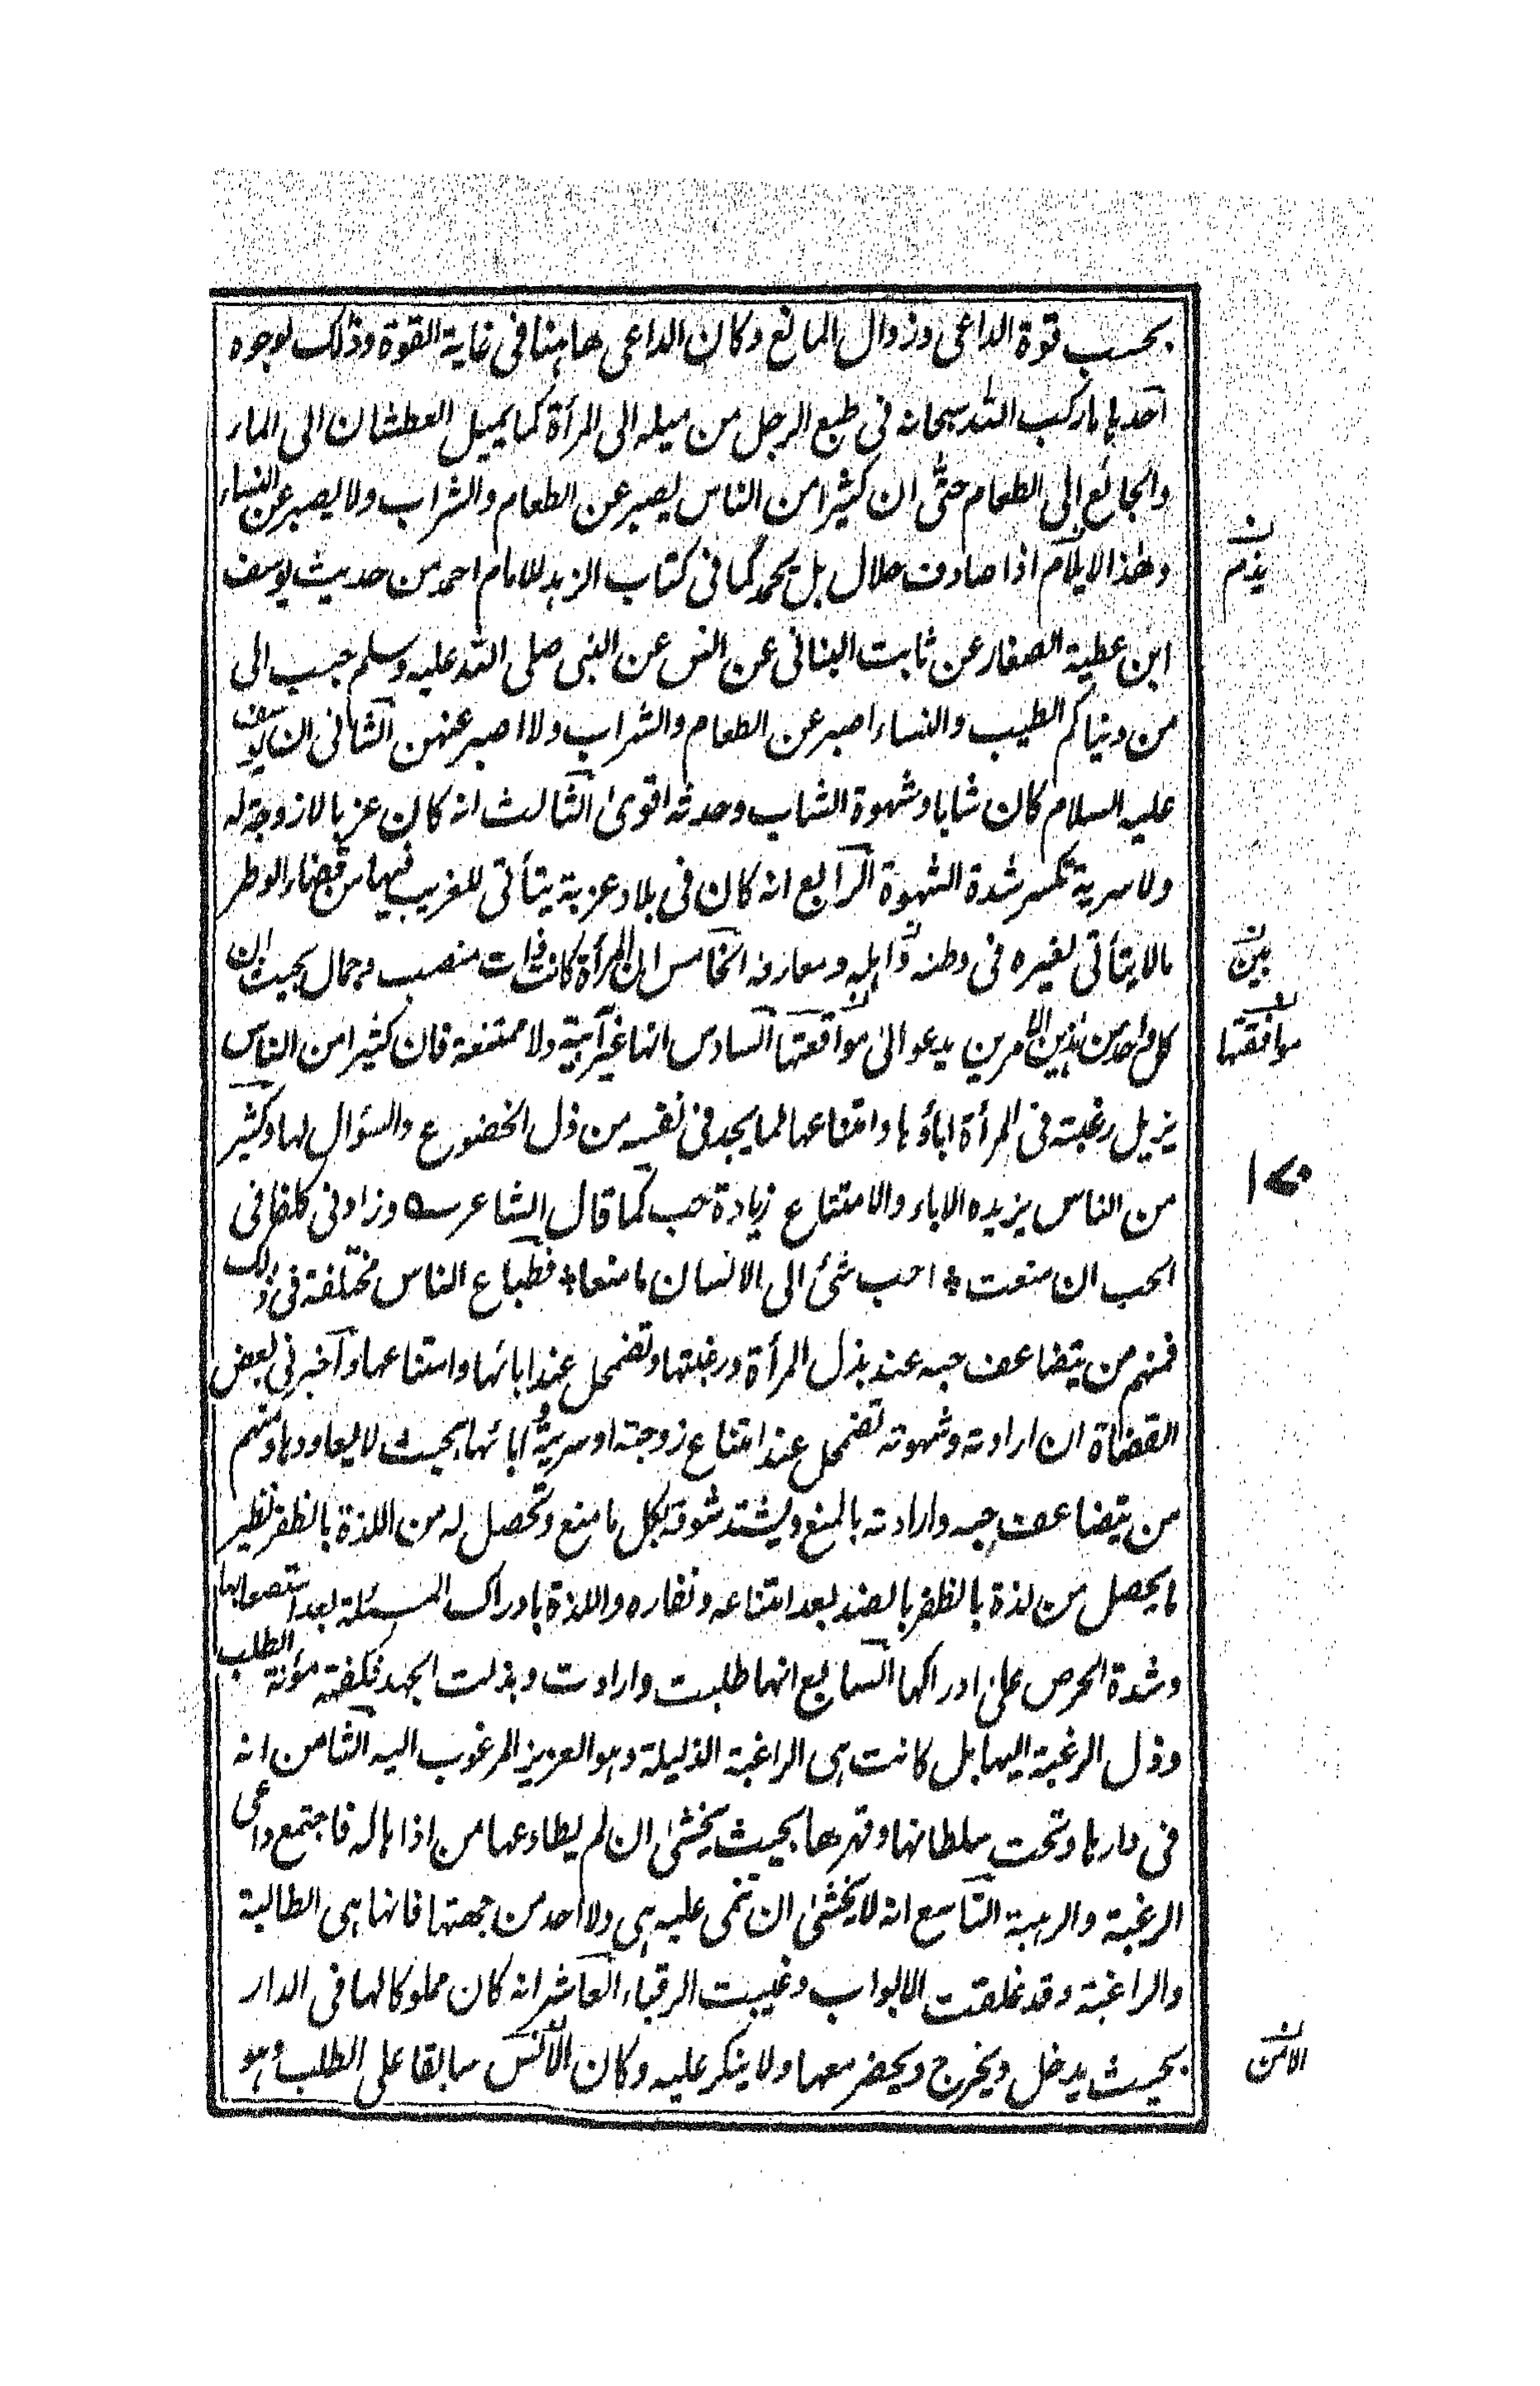 بحسب قوة الداعى وزوال المانع وكان الداعى هاهنا فى غاية القوة وذلك لوجوه
أحدها ما ركب الله سبحانه فى طبع الرجل من ميله الى المرأة كما يميل العطشان الى الماء
والجائع الى الطعام حتى ان كثيرا من الناس يصبر عن الطعام والشراب ولا يصبر عن النساء
وهذا لا يلام اذا صادف حلال بل يحمد كما فى كتاب الزهد للامام احمد من حديث يوسف
ابن عطية الصفار عن ثابت البنانى عن انس عن النبى صلى الله عليه وسلم حبب الى
من دنياكم الطيب والنساء اصبر عن الطعام والشراب ولا اصبر عنهن الثانى ان يوسف
عليه السلام كان شابا وشهوة الشاب وحدته اقوى الثالث انه كان عزبا لا زوجة له
ولا سرية تكسر شدة الشهوة الرابع انه كان فى بلاد غربة يتأتى للغريب فيها من قضاء الوطر
ما لا يتأتى لغيره فى وطنه و اهله ومعارفه الخامس ان المرأة كانت ذات منصب وجمال بحيث ان
كل واحد من هذين الامرين يدعو الى مواقعتها السادس انها غير آبية ولا ممتنعة فان كثيرا من الناس
يزيل رغبته فى المرأة اباؤها وامتناعها لما يجد فى نفسه من ذل الخضوع والسؤال لها وكثير
من الناس يزيده الاباء والامتناع زيادة حب كما قال الشاعر ؎ وزادنى كلفا فى
الحب ان منعت * احب شئ الى الانسان ما منعا * فطباع الناس مختلفة فى ذلك
فمنهم من يتضاعف حبه عند بذل المرأة ورغبتها وتضمحل عند ابائها وامتناعها وآخبرنى بعض
القضاة ان ارادته وشهوته تضمحل عند امتناع زوجته او سريته و ابائها بحيث لا يعاودها ومنهم
من يتضاعف حبه وارادته بالمنع ويشتد شوقه بكل ما منع وتحصل له من اللذة بالظفر نظير
ما يحصل من لذة بالظفر بالصند بعد امتناعه ونفاره واللذة بادراك المسئلة بعد استصعابها
وشدة الحرص على ادراكها السابع انها طلبت وارادت وبذلت الجهد فكفته مؤنة الطلب
وذل الرغبة اليها بل كانت هى الراغبة الذليلة وهو العزيز المرغوب اليه الثامن انه
فى دارها وتحت سلطانها وقهرها بحيث يخشى ان لم يطاوعها من اذاها له فاجتمع داعى
الرغبة والرهبة التاسع انه لا يخشى ان تنمى عليه هى ولا احد من جهتها فانها هى الطالبة
والراغبة وقد غلقت الابواب وغيبت الرقباء العاشر انه كان مملوكا لها فى الدار
بحيث يدخل ويخرج ويحضر معها ولا ينكر عليه وكان الانس سابقا على الطلب وهو
يذم
بين
موافقتها
١٧٠
الامن